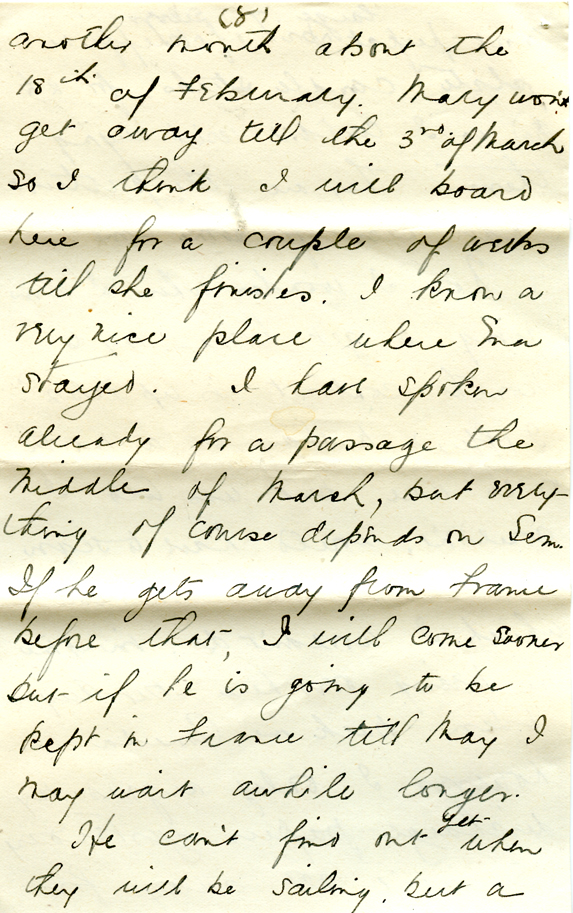 (8)
another month about the
18th of February. Mary won't
get away till the 3rd of March
so I think I will board
here for a couple of weeks
till she finishes. I know a
very nice place where Ena
stayed. I have spoken
already for a passage the
middle of March, but every-
thing of course depends on Sem.
If he gets away from France
before that, I will come sooner
but if he is going to be
kept in France till May I
may wait awhile longer.
He can't find out yet when
they will be sailing, but a